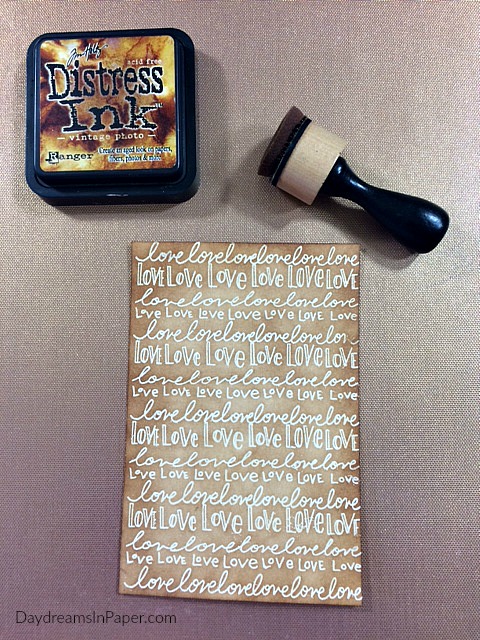 Tim Holtz
acid free
Distress
Ink
vintage photo
Ranger
Create an aged look on papers,
fibers, photos & more!
love love love love love love
LOVE LOVE LOVE LOVE LOVE LOVE
love love love love love love
LOVE LOVE LOVE LOVE LOVE LOVE LOVE
love love love love love lo
LOVE LOVE LOVE LOVE LOVE LOVE
love love love love love love
LOVE LOVE LOVE LOVE LOVE LOVE LOVE
love love love love love love
LOVE LOVE LOVE LOVE LOVE LOVE
love love love love love love
LOVE LOVE LOVE LOVE LOVE LOVE LOVE
love love love love love love
LOVE LOVE LOVE LOVE LOVE LOVE
love love love love love love
LOVE LOVE LOVE LOVE LOVE LOVE LOVE
love love love love love love
DaydreamsInPaper.com